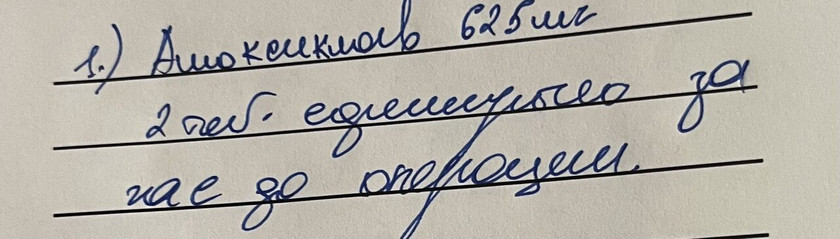 1.) Амоксиклав 625мг
2 таб. единоразово за
час до операции.